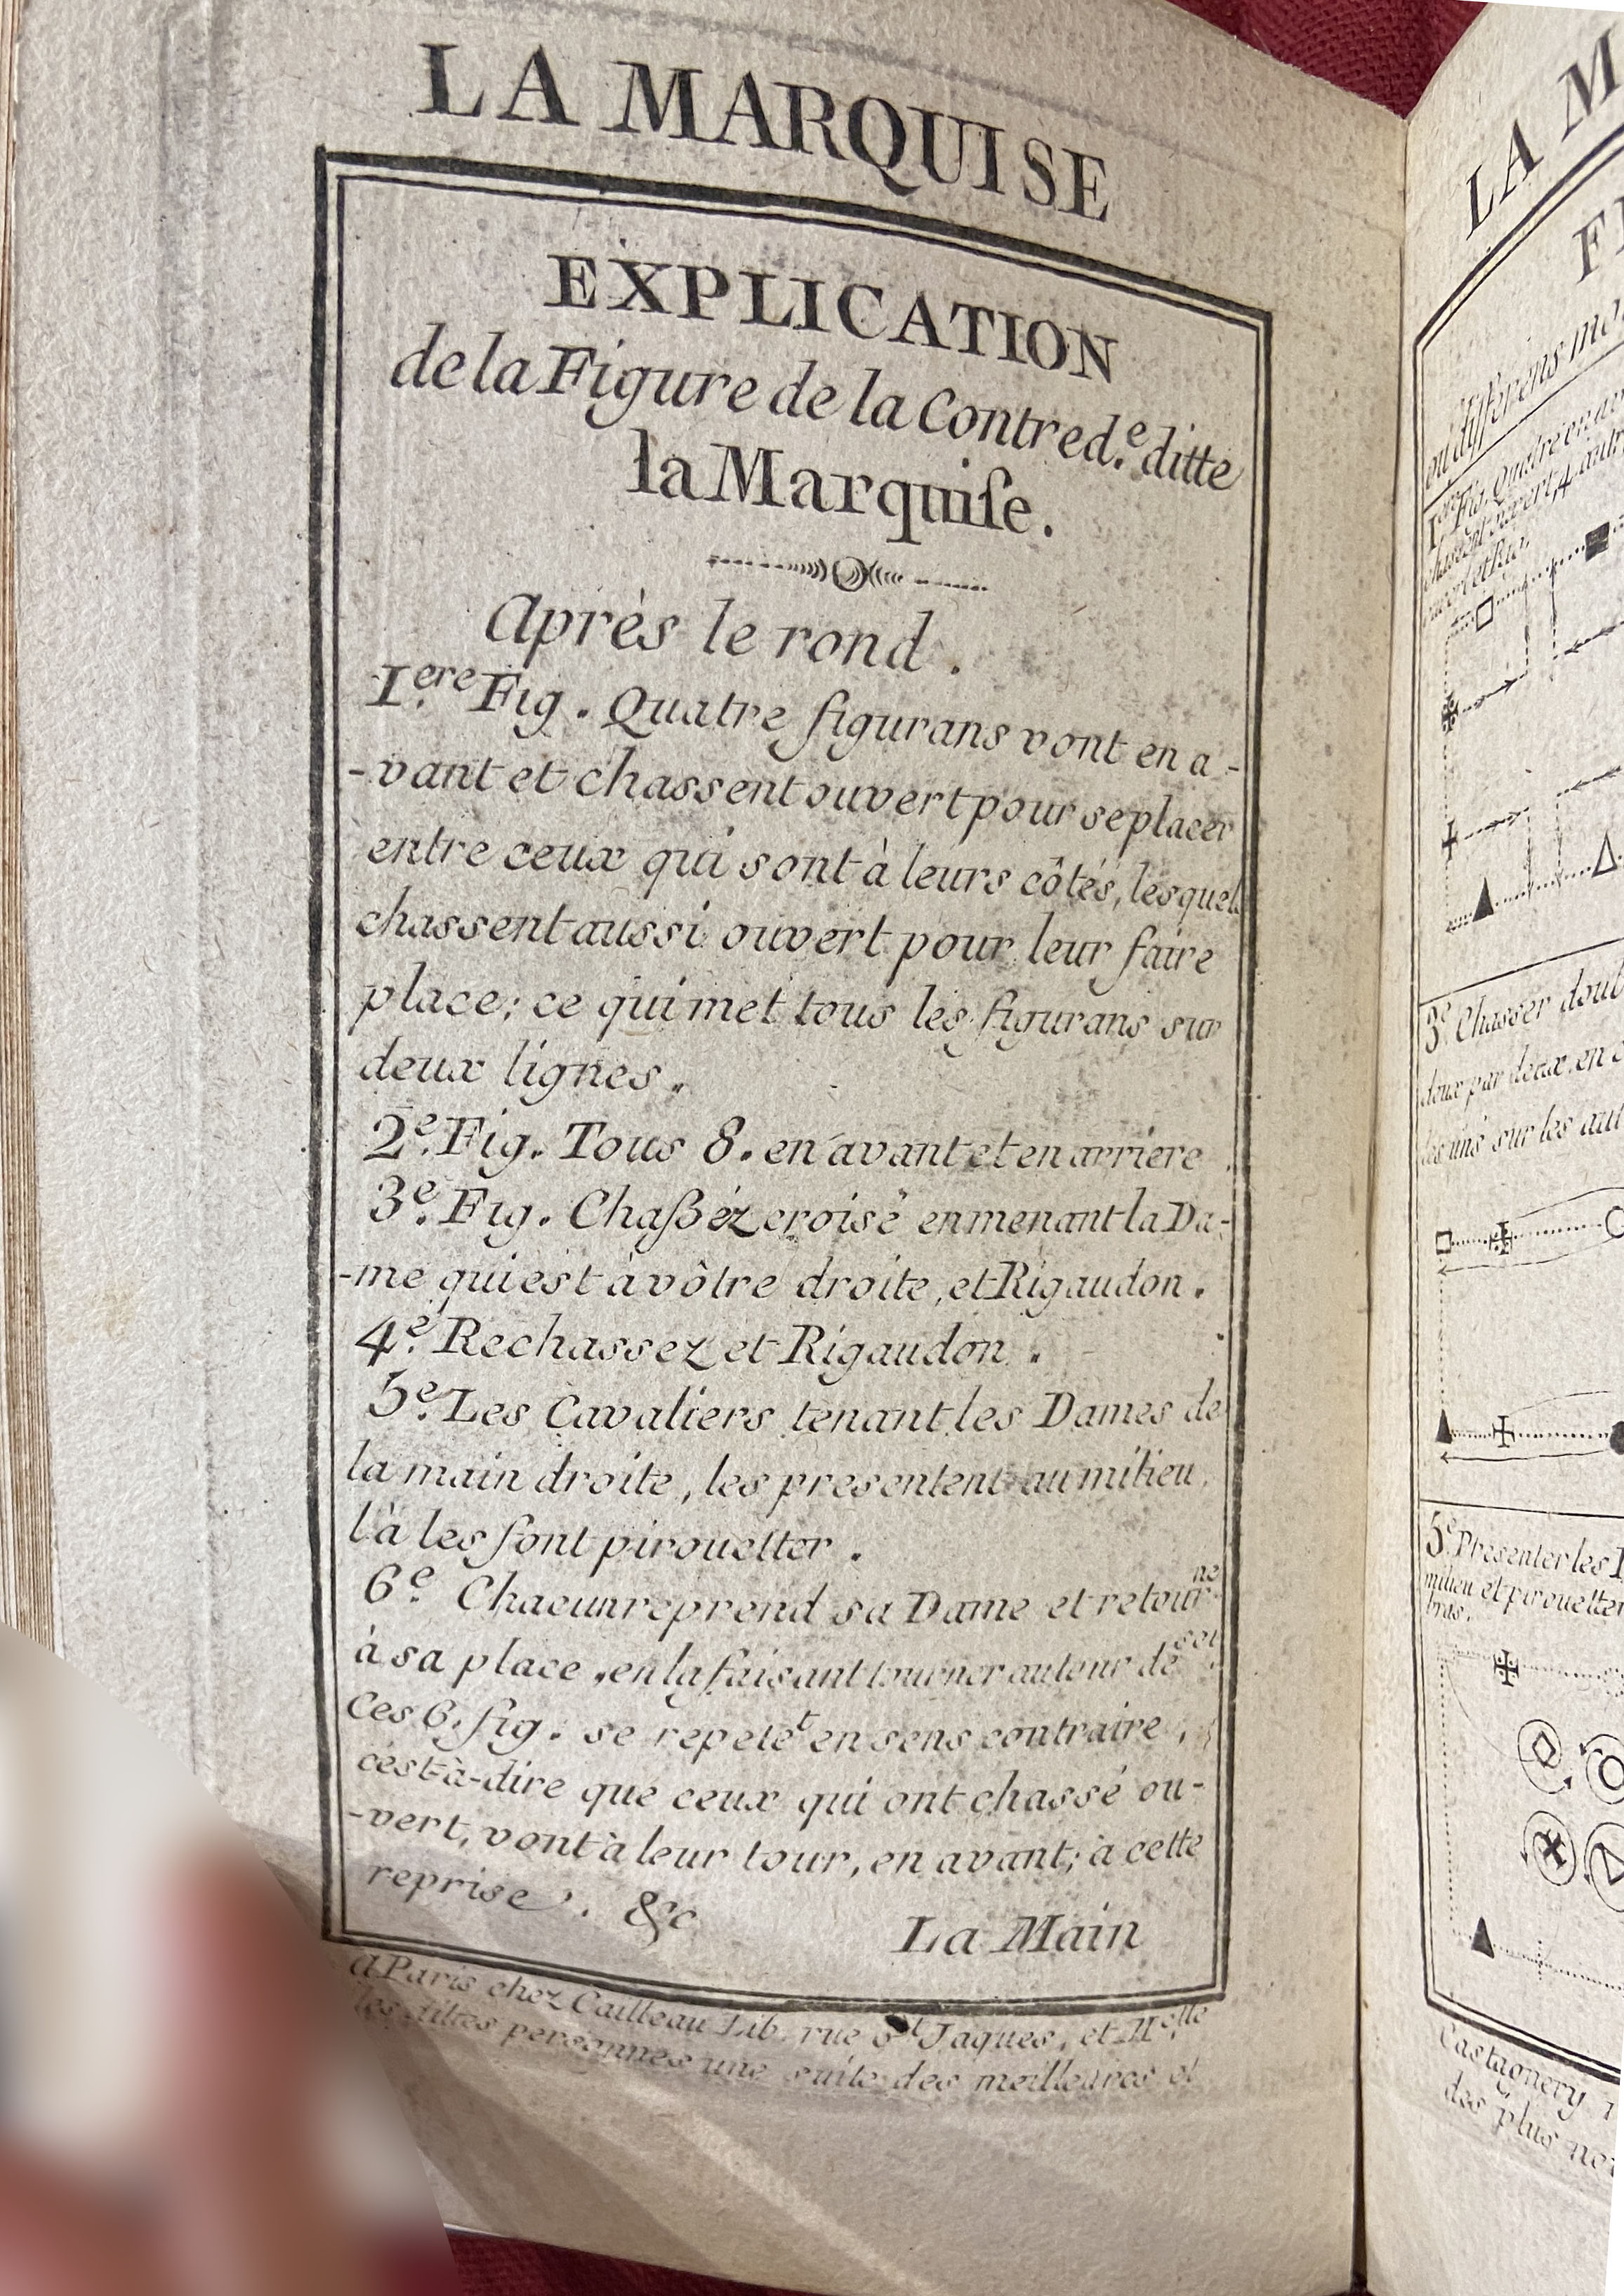 LA MARQUISE
EXPLICATION
de la Figure de la Contred.e ditte
la Marquiſe.
Après le rond.
1.ere Fig. Quatre figurans vont en a-
-vant et chassent ouvert pour se placer
entre ceux qui sont à leurs côtés, lesquels
chassent aussi ouvert pour leur faire
place; ce qui met tous les figurans sur
deux lignes.
2.e Fig. Tous 8. en avant et en arriere.
3.e Fig. Chaßéz croisé en menant la Da-
-me qui est à vôtre droite, et Rigaudon.
4.e Rechassez et Rigaudon.
5.e Les Cavaliers tenant les Dames de
la main droite, les presentent au milieu,
là les font pirouetter.
6.e Chacun reprend sa Dame et retourne
à sa place, en la faisant tourner autour de soi.
Ces 6. fig. se repetet en sens contraire,
c'est-à-dire que ceux qui ont chassé ou-
-vert, vont à leur tour, en avant; à cette
reprise. &c
La Main
A Paris chez Cailleau Lib. rue St Jaques, et Melle
les dittes personnes une suite des meilleures et
LA M
1.ere Fig. Quatre en
chassent ouvert, 4 autr
3.e Chasser doub
deux par deux, en
les uns sur les aut
5.e Presenter les
milieu et pirouetter
bras.
Castagnery
des plus